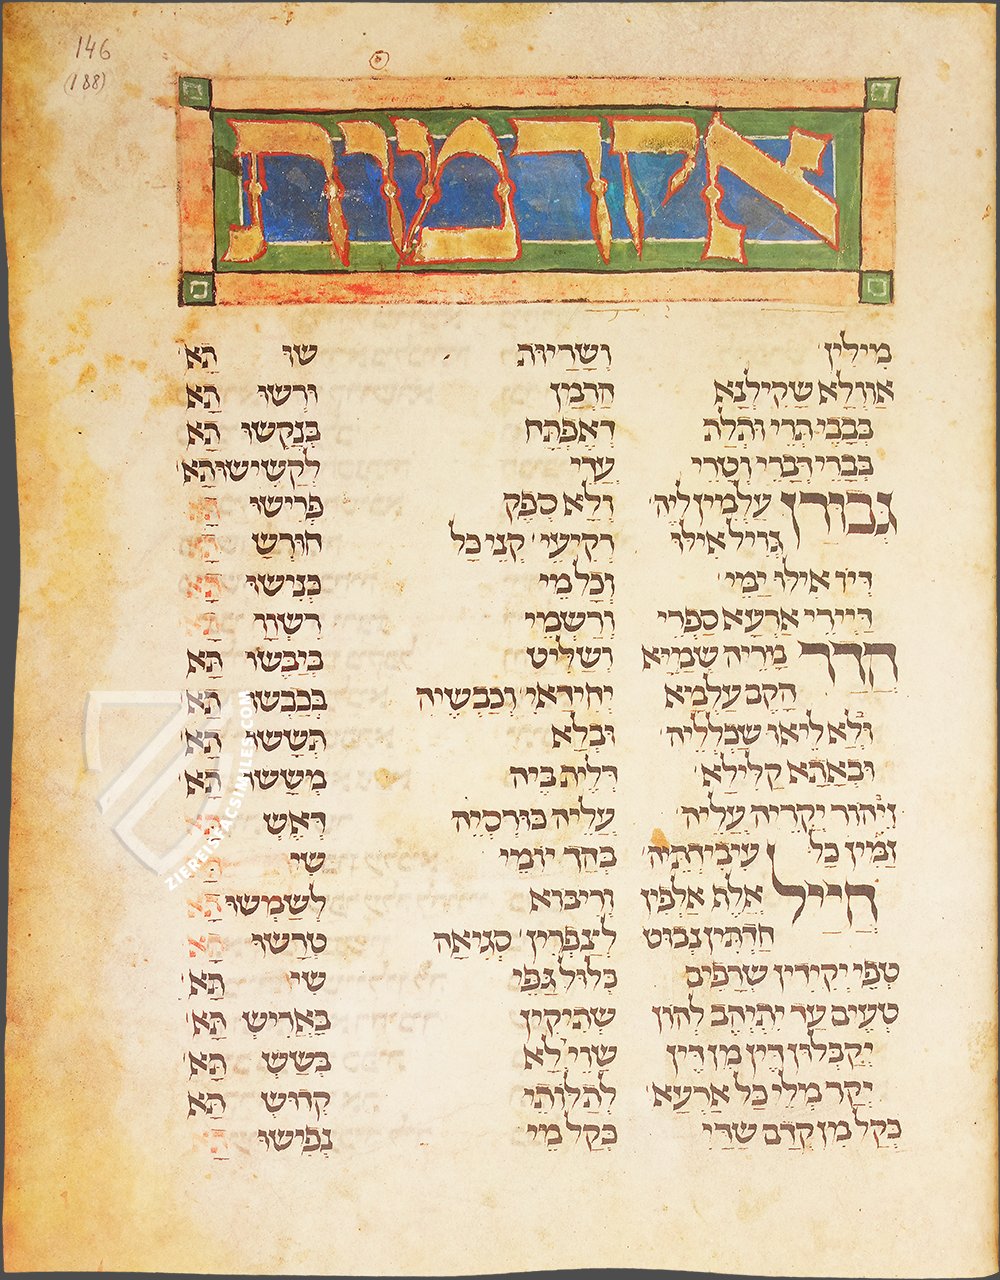 146
(188)
אקדמות
מילין וְשָׁרָיוּת שו תָא
אַוְולָא שָׁקִילְנָא הַרְמָן וּרְשׁוּ תָא
בְּבָבֵי תְּרֵי וּתְלָת דְאֶפְתַּח בְּנַקְשׁוּ תָא
בְּבָרֵי דְבָרֵי וְטָרֵי עֲדֵי לְקַשִּׁישׁוּתָא
גְּבוּרָן עָלְמִין לֵיהּ וְלָא סְפֵק פְּרִישׁוּ תָא
גְּוִיל אִילוּ רְקִיעֵי קְנֵי כָּל חוּרְשָׁ תָא
דְּיוֹ אִילוּ יַמֵּי וְכָל מֵי כְּנִישׁוּ תָא
דָּיְירֵי אַרְעָא סָפְרֵי וְרָשְׁמֵי רַשְׁוָו תָא
הֲדַר מָרֵיהּ שְׁמַיָּא וְשַׁלִּיט בְּיַבֶּשׁ תָא
הֲקֵם עָלְמָא יְחִידַאי וְכַבְּשֵׁיהּ בְּכַבְּשׁוּ תָא
וּלָא לֵיאוּ שַׁכְלְלֵיהּ וּבְלָא תְשָׁשׁוּ תָא
וּבְאָתָא קַלִּילָא דְּלֵית בֵּיהּ מְשָׁשׁוּ תָא
וִיהוֹר יְקָרֵיהּ עֲלֵיהּ עֲלֵיהּ כּוּרְסֵיהּ דְּאֶשׁ תָא
זַמִּין כָּל עִיבִידְתֵּיהּ בְּהַךְ יוֹמֵי שִׁי תָא
חֲיָיל אֲלַף אַלְפִין וְרִיבּוֹא לְשַׁמָּשׁוּ תָא
חַדְתִּין נְבוֹט לְצַפְרִין סַגִּיאָה טְרָשׁוּ תָא
טְפֵי יְקִידִין שְׂרָפִים כְּלוּל גַּפֵּי שִׁי תָא
טְעֵים עַד יִתְיְהֵב לְהוֹן שְׁתִיקִין בְּאַדִּישׁ תָא
יְקַבְּלוּן דֵּין מִן דֵּין שָׁוֵי לָא בְּשַׁשׁ תָא
יְקַר מְלֵי כָּל אַרְעָא לְתַלּוֹתֵי קְדוּשׁ תָא
כְּקָל מִן קֳדָם שַׁדַּי כְּקָל מֵי נְפִישׁוּ תָא
ZIEREIS FACSIMILES.COM